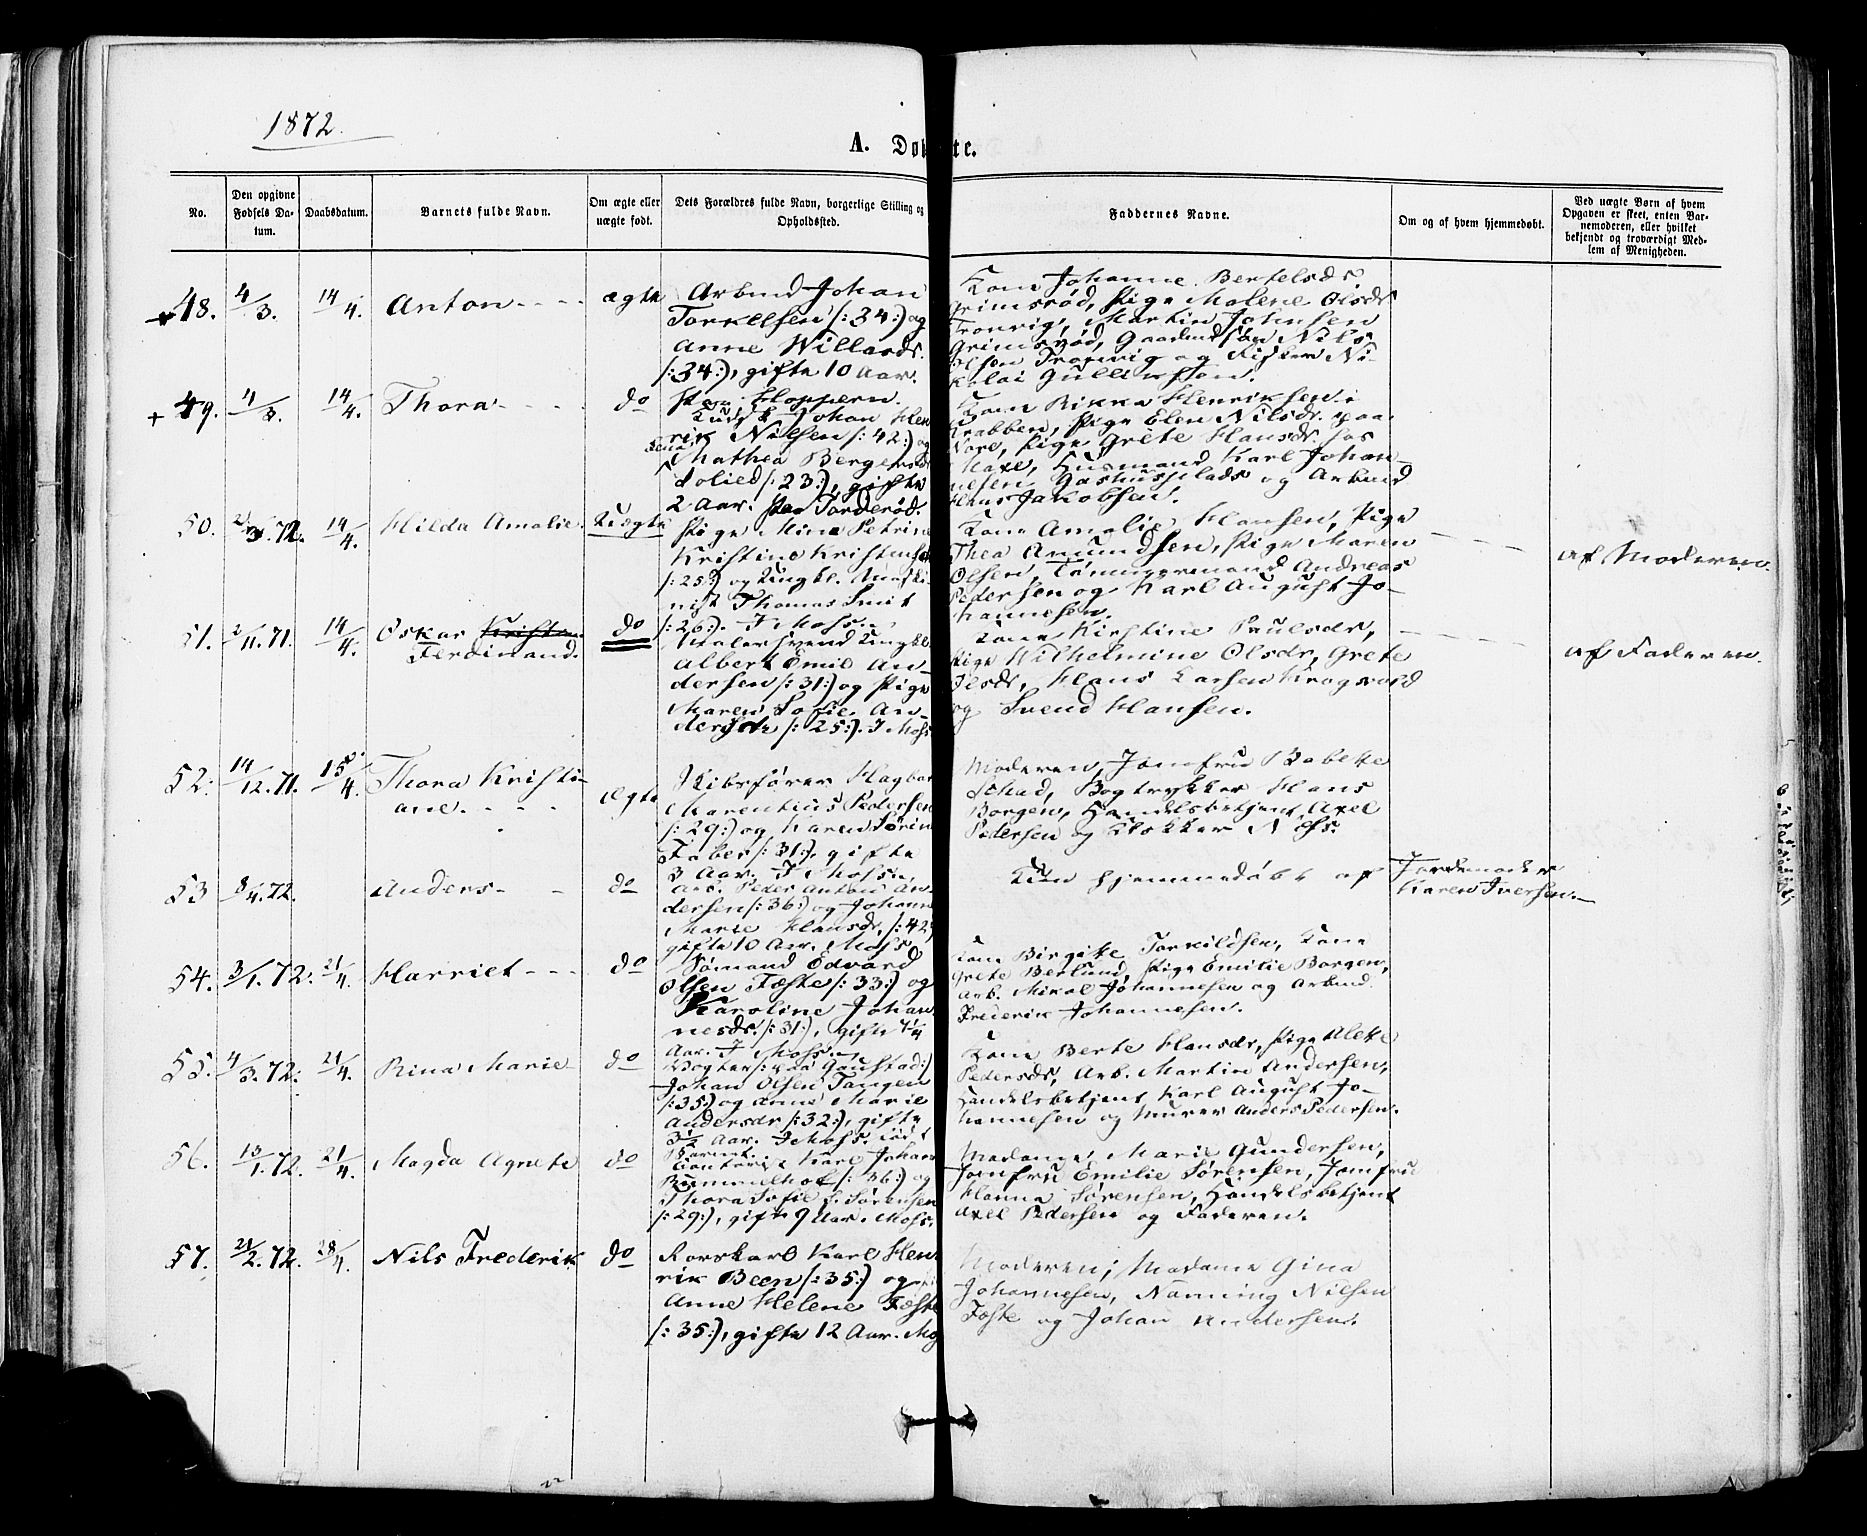 1872.
A. Dø te.
No.
Den opgivne Fødsels Da-tum.
Daabsdatum.
Barnets fulde Navn.
Om ægte eller uægte født.
Dets Forældres fulde Navn, borgerlige Stilling og Opholdssted.
Faddernes Navne.
Om og af hvem hjemmedøbt.
Ved uægte Børn af hvem Opgaven er skeet, enten Bar-nemoderen, eller hvilket bekjendt og troværdigt Med-lem af Menigheden.
48. 4/3. 14/4. Anton ægte
Arbmd Johan
Torkelsen /:34:/ og
Anne Willards.
/:34:/, gifte 10 Aar.
Kone Johanne Bertelsdr.
Grimsrød, Pige Malene Olsdr
Tronvig, Martin Johnsen
Grimsrød, Gaardmdsøn Nils
Olsen Tronvig og Fisker Ni-
kolai Gulliksen.
+ 49. 4/3. 14/4. Thora do
paa Hoppern.
Johan Hen
rik Nilsen /:42:/ og
Mathea Bergersdr
Solied /:23:/, gifte
2 Aar. paa Torderød.
Kone Rikka Henriksen i
Krabben, Pige Elen Nilsdr. paa
Nore, Pige Grete Hansdr. hos
Maxe, Husmand Karl Johan-
nesen og Arbmd
Hans Jakobsen.
50. 2/3.72. 14/4. Hilda Amalie. Uægte
Pige Mina Petrine
Kristine Kristens
/:25:/ og Ungkl.
Thomas Smit
/:26:/. I Moss.
Kone Amalie Hansen, Pige
Thea Amundsen, Pige Maren
Olsen, Tømmermand Andreas
Pedersen og Karl August Jo-
hannesen.
af Moderen.
51. 2/11.71. 14/4. Oskar
Ferdinand. do
Malersvend Ungkl
Albert Emil An-
dersen /:31:/ og Pige
Maren Sofie An-
dersdr /:25:/. I Moss
Kone Kirstine Paulsdr,
Pige Wilhelmine Olsdr, Grete
Olsdr, Hans Larsen Krogsvold
og Svend Hansen.
af Faderen.
52. 14/12.71. 15/4. Thora Kristi-
ane. ægte
Skibsfører Hagbar
Marentius Pedersen
/:29:/ og Karen Sørin
Faber /:31:/, gifte
3 Aar. I Moss.
Moderen, Jomfru Babette
Schad, Bogtrykker Hans
Borgen, Handelsbetjent Axel
Pedersen og Klokker Ness.
53 8/4.72. Anders do
Arb. Peder Anton An
dersen /:36:/ og Johann
Marie Hansdr, /:42:/
gifte 10 Aar. Moss
Kun hjemmedøbt af Jordemoder
Karen Iversen.
54. 3/1.72. 21/4. Harriet do
Sømand Edvard
Olsen Fæste /:33:/ og
Karoline Johan
nesdr. /:31:/, gifte
Aar. I Moss.
Kone Birgitte Torkildsen, Kone
Grete Berlund, Pige Emilie Borgen,
Arb. Mikal Johannesen og Arbmd.
Frederik Johannesen.
55. 4/3.72. 21/4. Rina Marie do
Johan Olsen Tangen
/:35:/ og Anne Marie
Andersdr /:32:/, gifte
3½ Aar. I Moss.
Kone Berte Hansdr, Pige Alete
Pedersdr, Arb. Martin Andersen,
Handelsbetjent Karl August Jo-
hannesen og Murer Anders Pedersen.
56. 13/1.72. 21/4. Magda Agnete do
Kontorist Karl Johan
Rummelhof /:36:/ og
Thora Sofie f. Sørensen
/:29:/, gifte 9 Aar. Moss.
Madame Marie Gundersen,
Jomfru Emilie Sørensen, Jomfru
Hanna Sørensen, Handelsbetjent
Axel Pedersen og Faderen.
57. 21/2.72. 28/4. Nils Frederik do
Rorskarl Karl Hen
rik Been /:35:/ og
Anne Helene Fæste
/:35:/, gifte 12 Aar. Mos
Moderen, Madame Gina
Johannesen, Nanning Nilsen
Fæste og Johan Andersen.